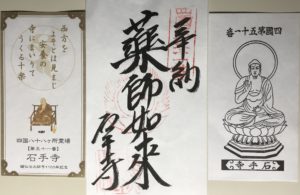 西方を
よそとは見まじ
安養の
寺にまいりて
うくる十楽
四国八十八ヶ所霊場
【第五十一番】
石手寺
奉納
薬師如来
石手寺
四國第五十一番
石手寺